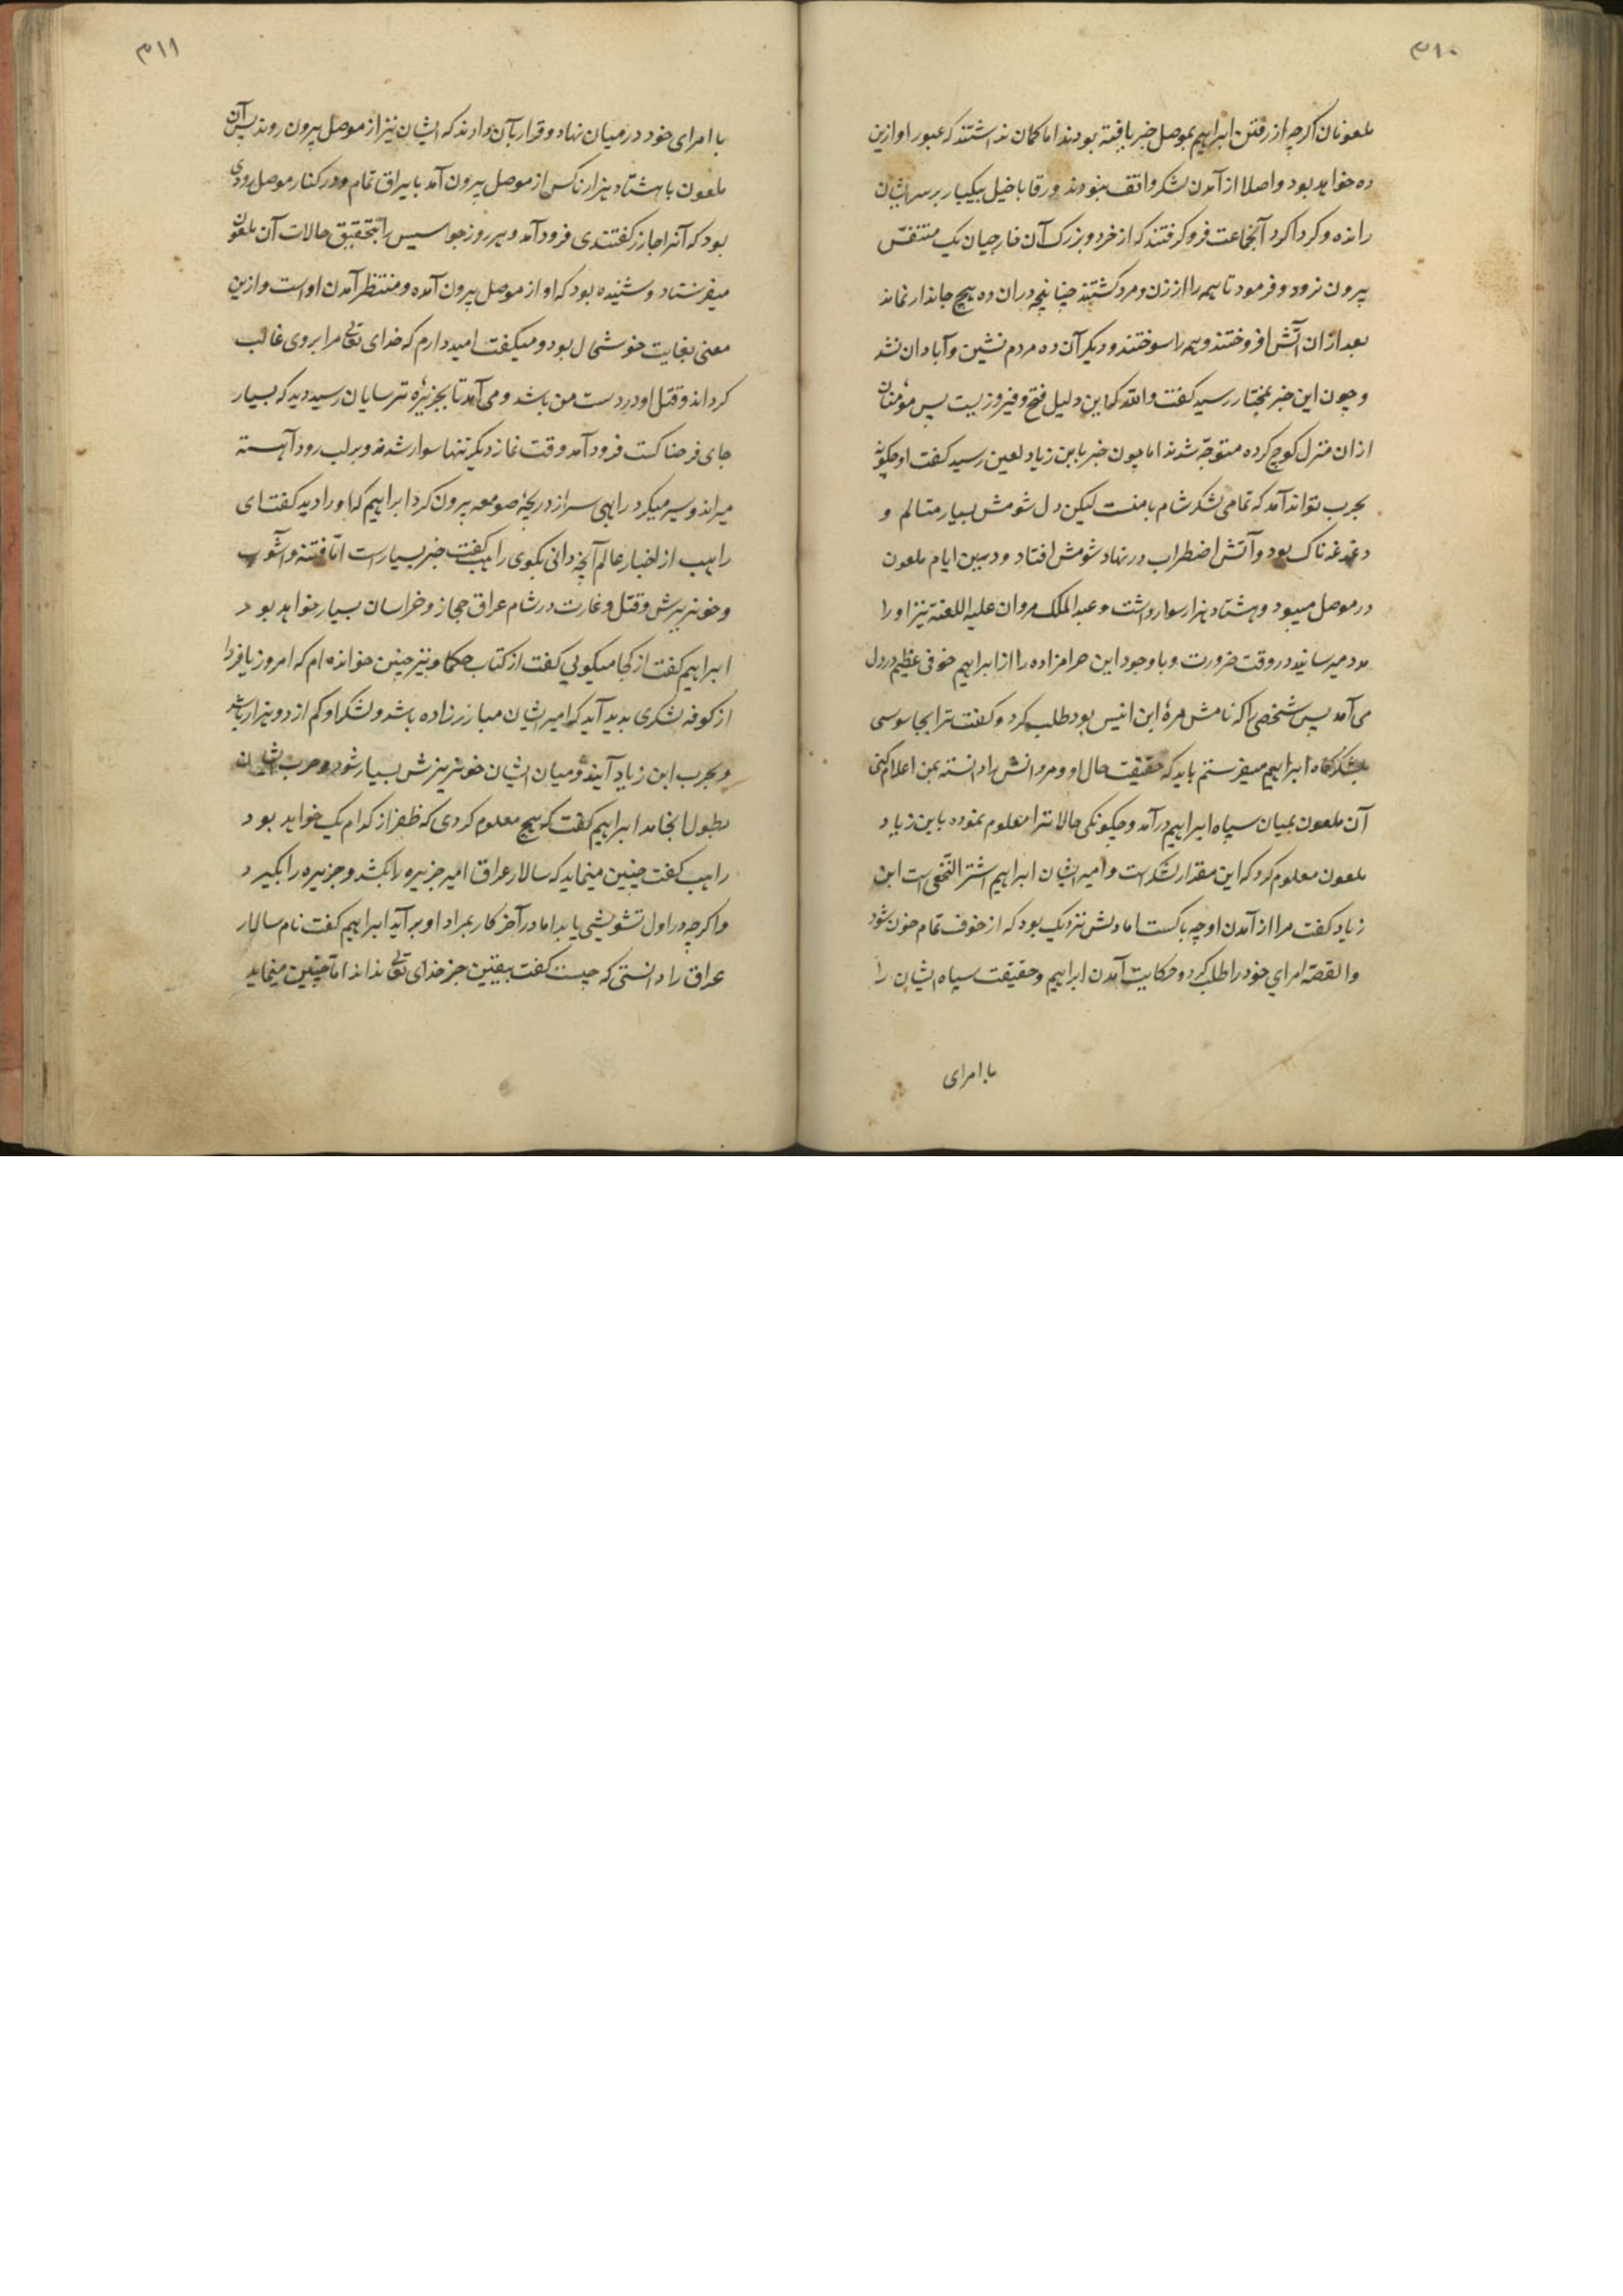 ۳۱۰
ملعونان اکرچه از رفتن ابراهیم بموصل خبر یافته بودند اما کمان نداشتند که عبور او ازین
ده خواهد بود و اصلا از آمدن لشکر واقف نبودند ورقا با خیل بیکبار بر سر ایشان
رانده و کرداکرد آنجماعت فرو کرفتند که از خرد و بزرک آن خارجیان یک متنفس
بیرون نرود و فرمود تا همه را از زن و مرد کشتند چنانچه در ان ده هیچ جاندار نماند
بعد ازان آتش افروختند و همه را سوختند و دیکر آن ده مردم نشین و آبادان نشد
و چون این خبر بمختار رسید کفت والله که این دلیل فتح و فیروزیست پس مؤمنان
از ان منزل کوچ کرده متوجه شدند اما چون خبر بابن زیاد لعین رسید کفت او چکونه
بحرب تواند آمد که تمامی لشکر شام با منست لیکن دل شومش بسیار متالم و
دغدغه ناک بود و آتش اضطراب در نهاد شومش افتاد و درین ایام ملعون
در موصل میبود و هشتاد هزار سوار داشت و عبدالملک مروان علیه اللعنة نیز او را
مدد میرسانید در وقت ضرورت و با وجود این حرامزاده را از ابراهیم خوفی عظیم در دل
می آمد پس شخصی را که نامش مره ابن انیس بود طلب کرد و کفت ترا بجاسوسی
بلشکرکاه ابراهیم میفرستم باید که حقیقت حال او و مردانش را دانسته بمن اعلام کنی
آن ملعون بمیان سپاه ابراهیم درآمد و چکونکی حالات را معلوم نموده بابن زیاد
ملعون معلوم کرد که این مقدار لشکرست و امیر ایشان ابراهیم اشتر النخعی است ابن
زیاد کفت مرا از آمدن او چه باکست اما دلش نزدیک بود که از خوف تمام خون شود
والقصه امرای خود را طلب کرد و حکایت آمدن ابراهیم و حقیقت سپاه ایشان را
با امرای
۳۱۱
با امرای خود در میان نهاد و قرار بآن دادند که ایشان نیز از موصل بیرون روند پس آن
ملعون با هشتاد هزار ناکس از موصل بیرون آمد با یراق تمام و در کنار موصل رودی
بود که آنرا جازر کفتندی فرود آمد و هر روز جواسیس را بتحقیق حالات آن ملعون
میفرستاد و شنیده بود که او از موصل بیرون آمده و منتظر آمدن او است و ازین
معنی بغایت خوشحال بود و میکفت امیددارم که خدای تعالی مرا بر وی غالب
کرداند و قتل او در دست من باشد و می آمد تا بجزیرهٔ ترسایان رسید دید که بسیار
جای فرحناکست فرود آمد وقت نماز دیکر تنها سوار شد و بر لب رود آهسته
میراند و سیر میکرد راهبی سر از دریچهٔ صومعه بیرون کرد ابراهیم که او را دید کفت ای
راهب از اخبار عالم آنچه دانی بکوی راهب کفت خبر بسیارست اما فتنه و آشوب
و خونریزش و قتل و غارت در شام عراق حجاز و خراسان بسیار خواهد بود
ابراهیم کفت از کجا میکویی کفت از کتاب حکما و نیز چنین خوانده ام که امروز یا فردا
از کوفه لشکری بدید آید که امیر ایشان مبارززاده باشد و لشکر او کم از دو هزار باشد
و بحرب ابن زیاد آیند و میان ایشان خونریزش بسیار شود و حرب ایشان
بطول انجامد ابراهیم کفت که هیچ معلوم کردی که ظفر از کدام یک خواهد بود
راهب کفت چنین مینماید که سالار عراق امیر جزیره را بکشد و جزیره را بکیرد
و اکرچه در اول تشویشی یابد اما در آخر کار بمراد او بر آید ابراهیم کفت نام سالار
عراق را دانستی که چیست کفت بیقین جز خدای تعالی نداند اما چنین مینماید